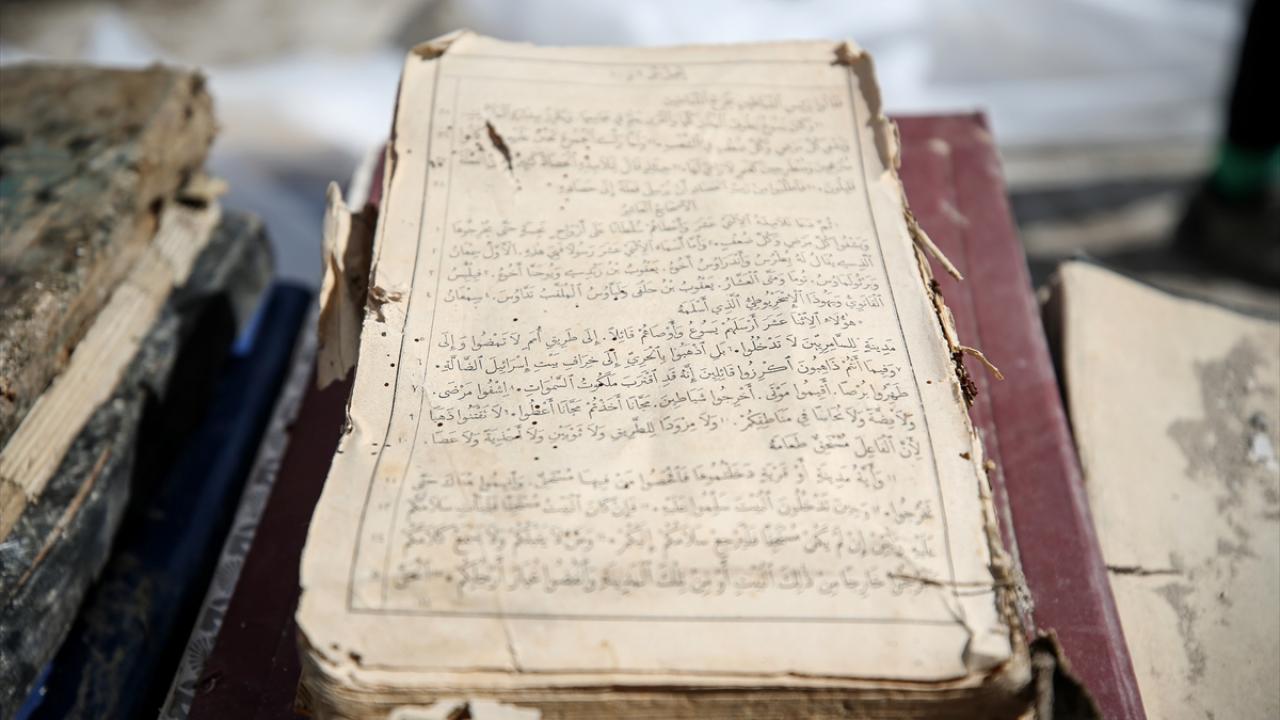 قالوا برئيس الشياطين يخرج الشياطين
قليلون. فاطلبوا من رب الحصاد أن يرسل فعلة إلى حصاده
الأصحاح العاشر
ثم دعا تلاميذه الاثني عشر وأعطاهم سلطانا على أرواح نجسة حتى يخرجوها ١
ويشفوا كل مرض وكل ضعف. وأما أسماء الاثني عشر رسولا فهي هذه. الأول سمعان
الذي يقال له بطرس وأندراوس أخوه. يعقوب بن زبدي ويوحنا أخوه. فيلبس
وبرثولماوس. توما ومتى العشار. يعقوب بن حلفى ولباوس الملقب تداوس. سمعان ٤
القانوي ويهوذا الإسخريوطي الذي أسلمه
هؤلاء الاثنا عشر أرسلهم يسوع وأوصاهم قائلا. إلى طريق أمم لا تمضوا وإلى
مدينة للسامريين لا تدخلوا. بل اذهبوا بالحري إلى خراف بيت إسرائيل الضالة. ٦
وفيما أنتم ذاهبون اكرزوا قائلين إنه قد اقترب ملكوت السموات. اشفوا مرضى. ٧
طهروا برصا. أقيموا موتى. أخرجوا شياطين. مجانا أخذتم مجانا أعطوا. لا تقتنوا ذهبا ٩
ولا فضة ولا نحاسا في مناطقكم. ولا مزودا للطريق ولا ثوبين ولا أحذية ولا عصا. ١٠
لأن الفاعل مستحق طعامه
وأية مدينة أو قرية دخلتموها فافحصوا من فيها مستحق. وأقيموا هناك حتى ١١
تخرجوا. وحين تدخلون البيت سلموا عليه. فإن كان البيت مستحقا فليأت سلامكم ١٢
عليه. ولكن إن لم يكن مستحقا فليرجع سلامكم إليكم. ومن لا يقبلكم ولا يسمع كلامكم ١٤
فاخرجوا خارجا من ذلك البيت أو من تلك المدينة وانفضوا غبار أرجلكم